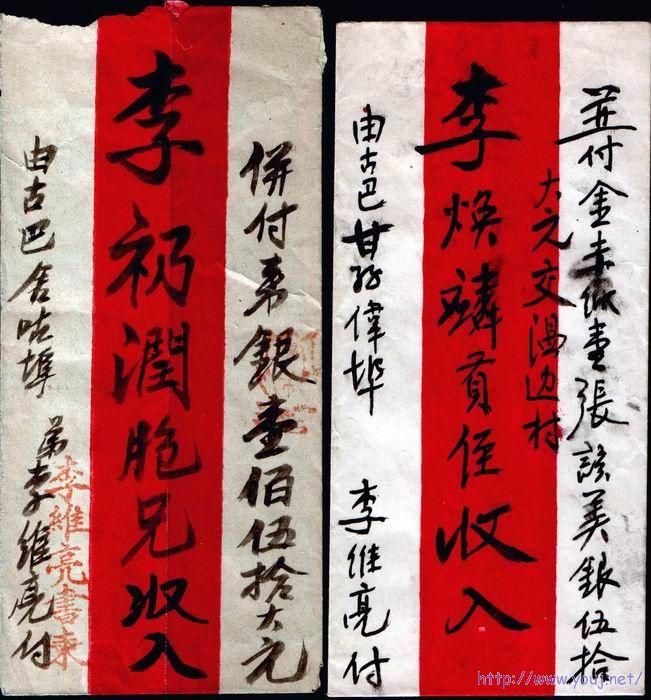 併付來銀壹佰伍拾大元
李礽潤胞兄收入
由古巴舍咕埠
弟李維亮付
李維亮書柬
並付金赤紙壹張該美銀伍拾
大元交温边村
李焕侄收入
由古巴甘孖偉埠
李維亮付
http://www.youj.net/